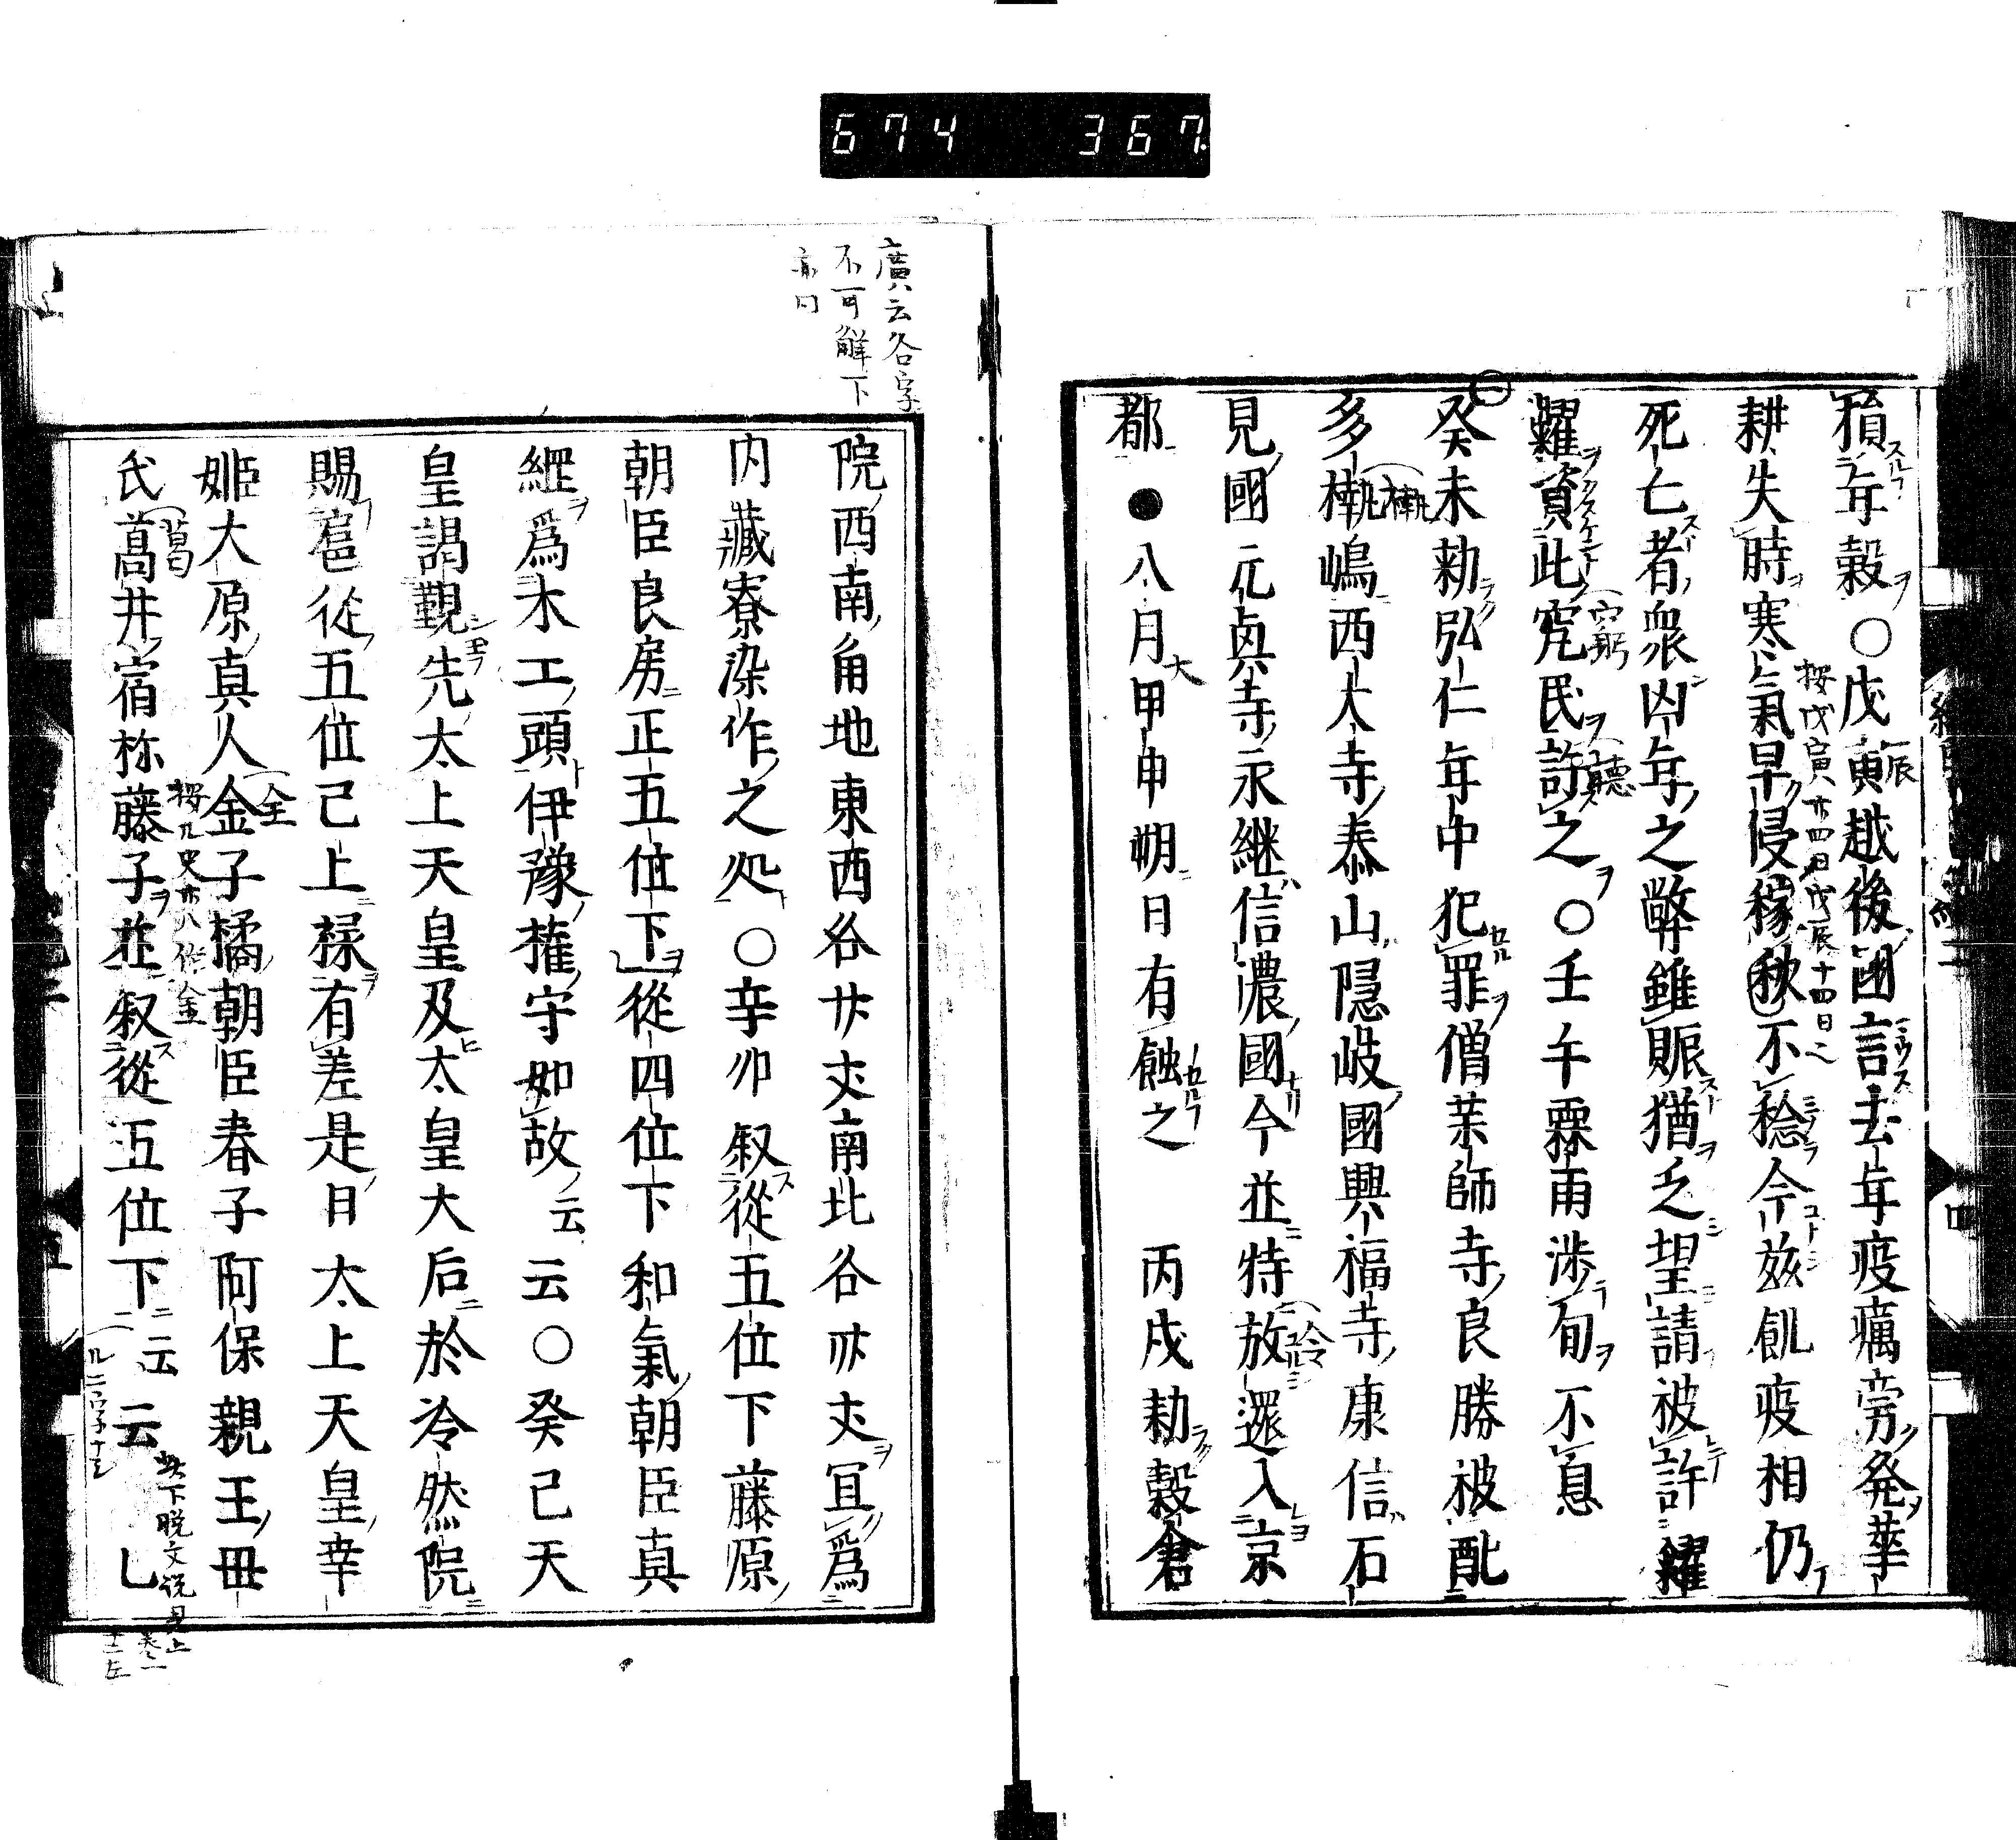 674 367
積年穀○戊寅越後国言去年疫癘旁発華
耕失時寒氣早侵稼秋不稔今茲飢疫相仍
死亡者衆凶年之弊雖賑猶乏望請被許糴
糶資此窮民許之○壬午霖雨渉旬不息
癸未勅弘仁年中犯罪僧藥師寺良勝被配
多褹嶋西大寺泰山隠岐國興福寺康信石
見國元興寺永継信濃國今並特放還入京
都●八月甲申朔日有蝕之 丙戌勅穀倉
按戊寅廿四日戊辰十四日
院西南角地東西各廿丈南北各卅丈冝為
内藏寮染作之処○辛卯叙従五位下藤原
朝臣良房正五位下従四位下和氣朝臣真
綱為木工頭伊豫権守如故云云○癸巳天
皇謁覲先太上天皇及太皇大后於冷然院
賜扈従五位已上禄有差是日太上天皇幸
姫大原真人金子橘朝臣春子阿保親王毋
氏葛井宿祢藤子並叙従五位下云云 乙
廣云各字
不可解下
亦同
此下脱文説見上